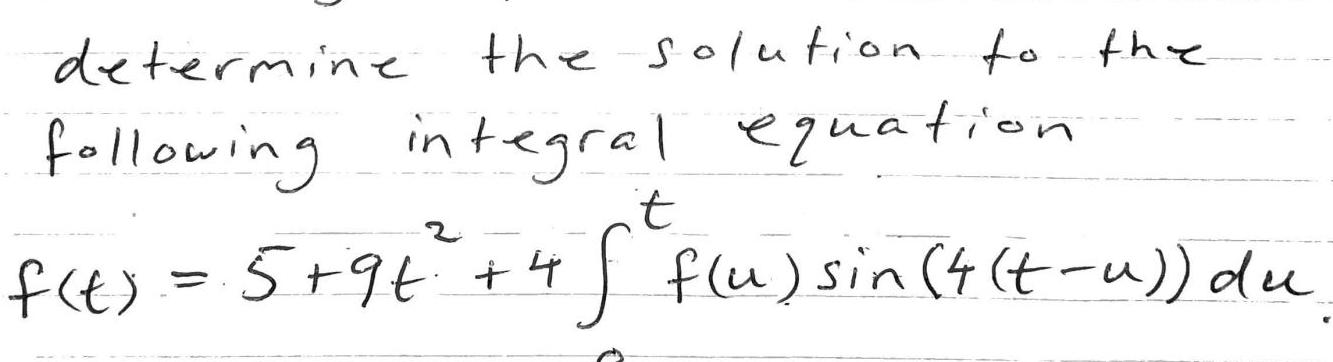 determine the solution to the
following integral equation
f(t) = 5+9t² + 4 ∫₀ᵗ f(u) sin(4(t-u)) du.